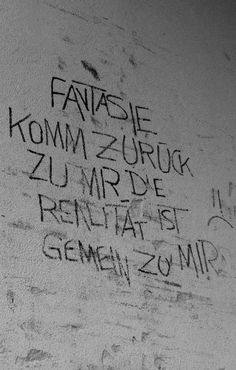 FANTASIE
KOMM ZURÜCK
ZU MIR DIE
REALITÄT IST
GEMEIN ZU MIR :(